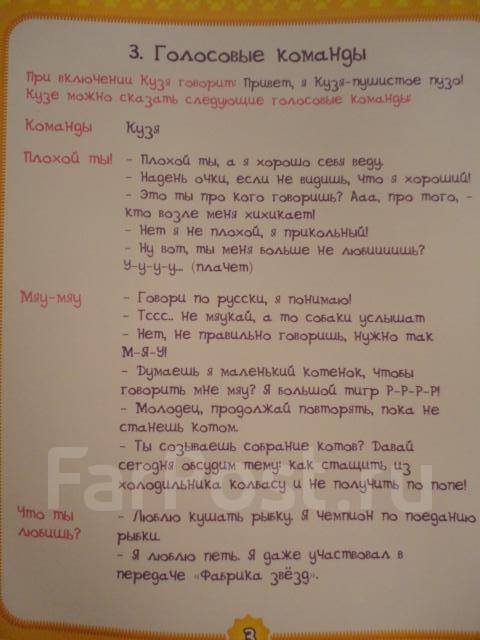 3. Голосовые команды
При включении Кузя говорит: Привет, я Кузя-пушистое пузо!
Кузе можно сказать следующие голосовые команды:
Команды Кузя
Плохой ты! - Плохой ты, а я хорошо себя веду.
- Надень очки, если не видишь, что я хороший!
- Это ты про кого говоришь? Ааа, про того, -
кто возле меня хихикает!
- Нет я не плохой, я прикольный!
- Ну вот, ты меня больше не любишишь?
У-у-у-у... (плачет)
Мяу-мяу - Говори по русски, я понимаю!
- Тссс.. не мяукай, а то собаки услышат
- Нет, не правильно говоришь, нужно так
М-Я-У!
- Думаешь я маленький котенок, чтобы
говорить мне мяу? Я большой тигр Р-Р-Р-Р!
- Молодец, продолжай повторять, пока не
станешь котом.
- Ты созываешь собрание котов? Давай
сегодня обсудим тему: как стащить из
холодильника колбасу и не получить по попе!
Что ты - Люблю кушать рыбку. Я чемпион по поеданию
любишь? рыбки.
- Я люблю петь. Я даже участвовал в
передаче «Фабрика звёзд».
3
FarPost.ru